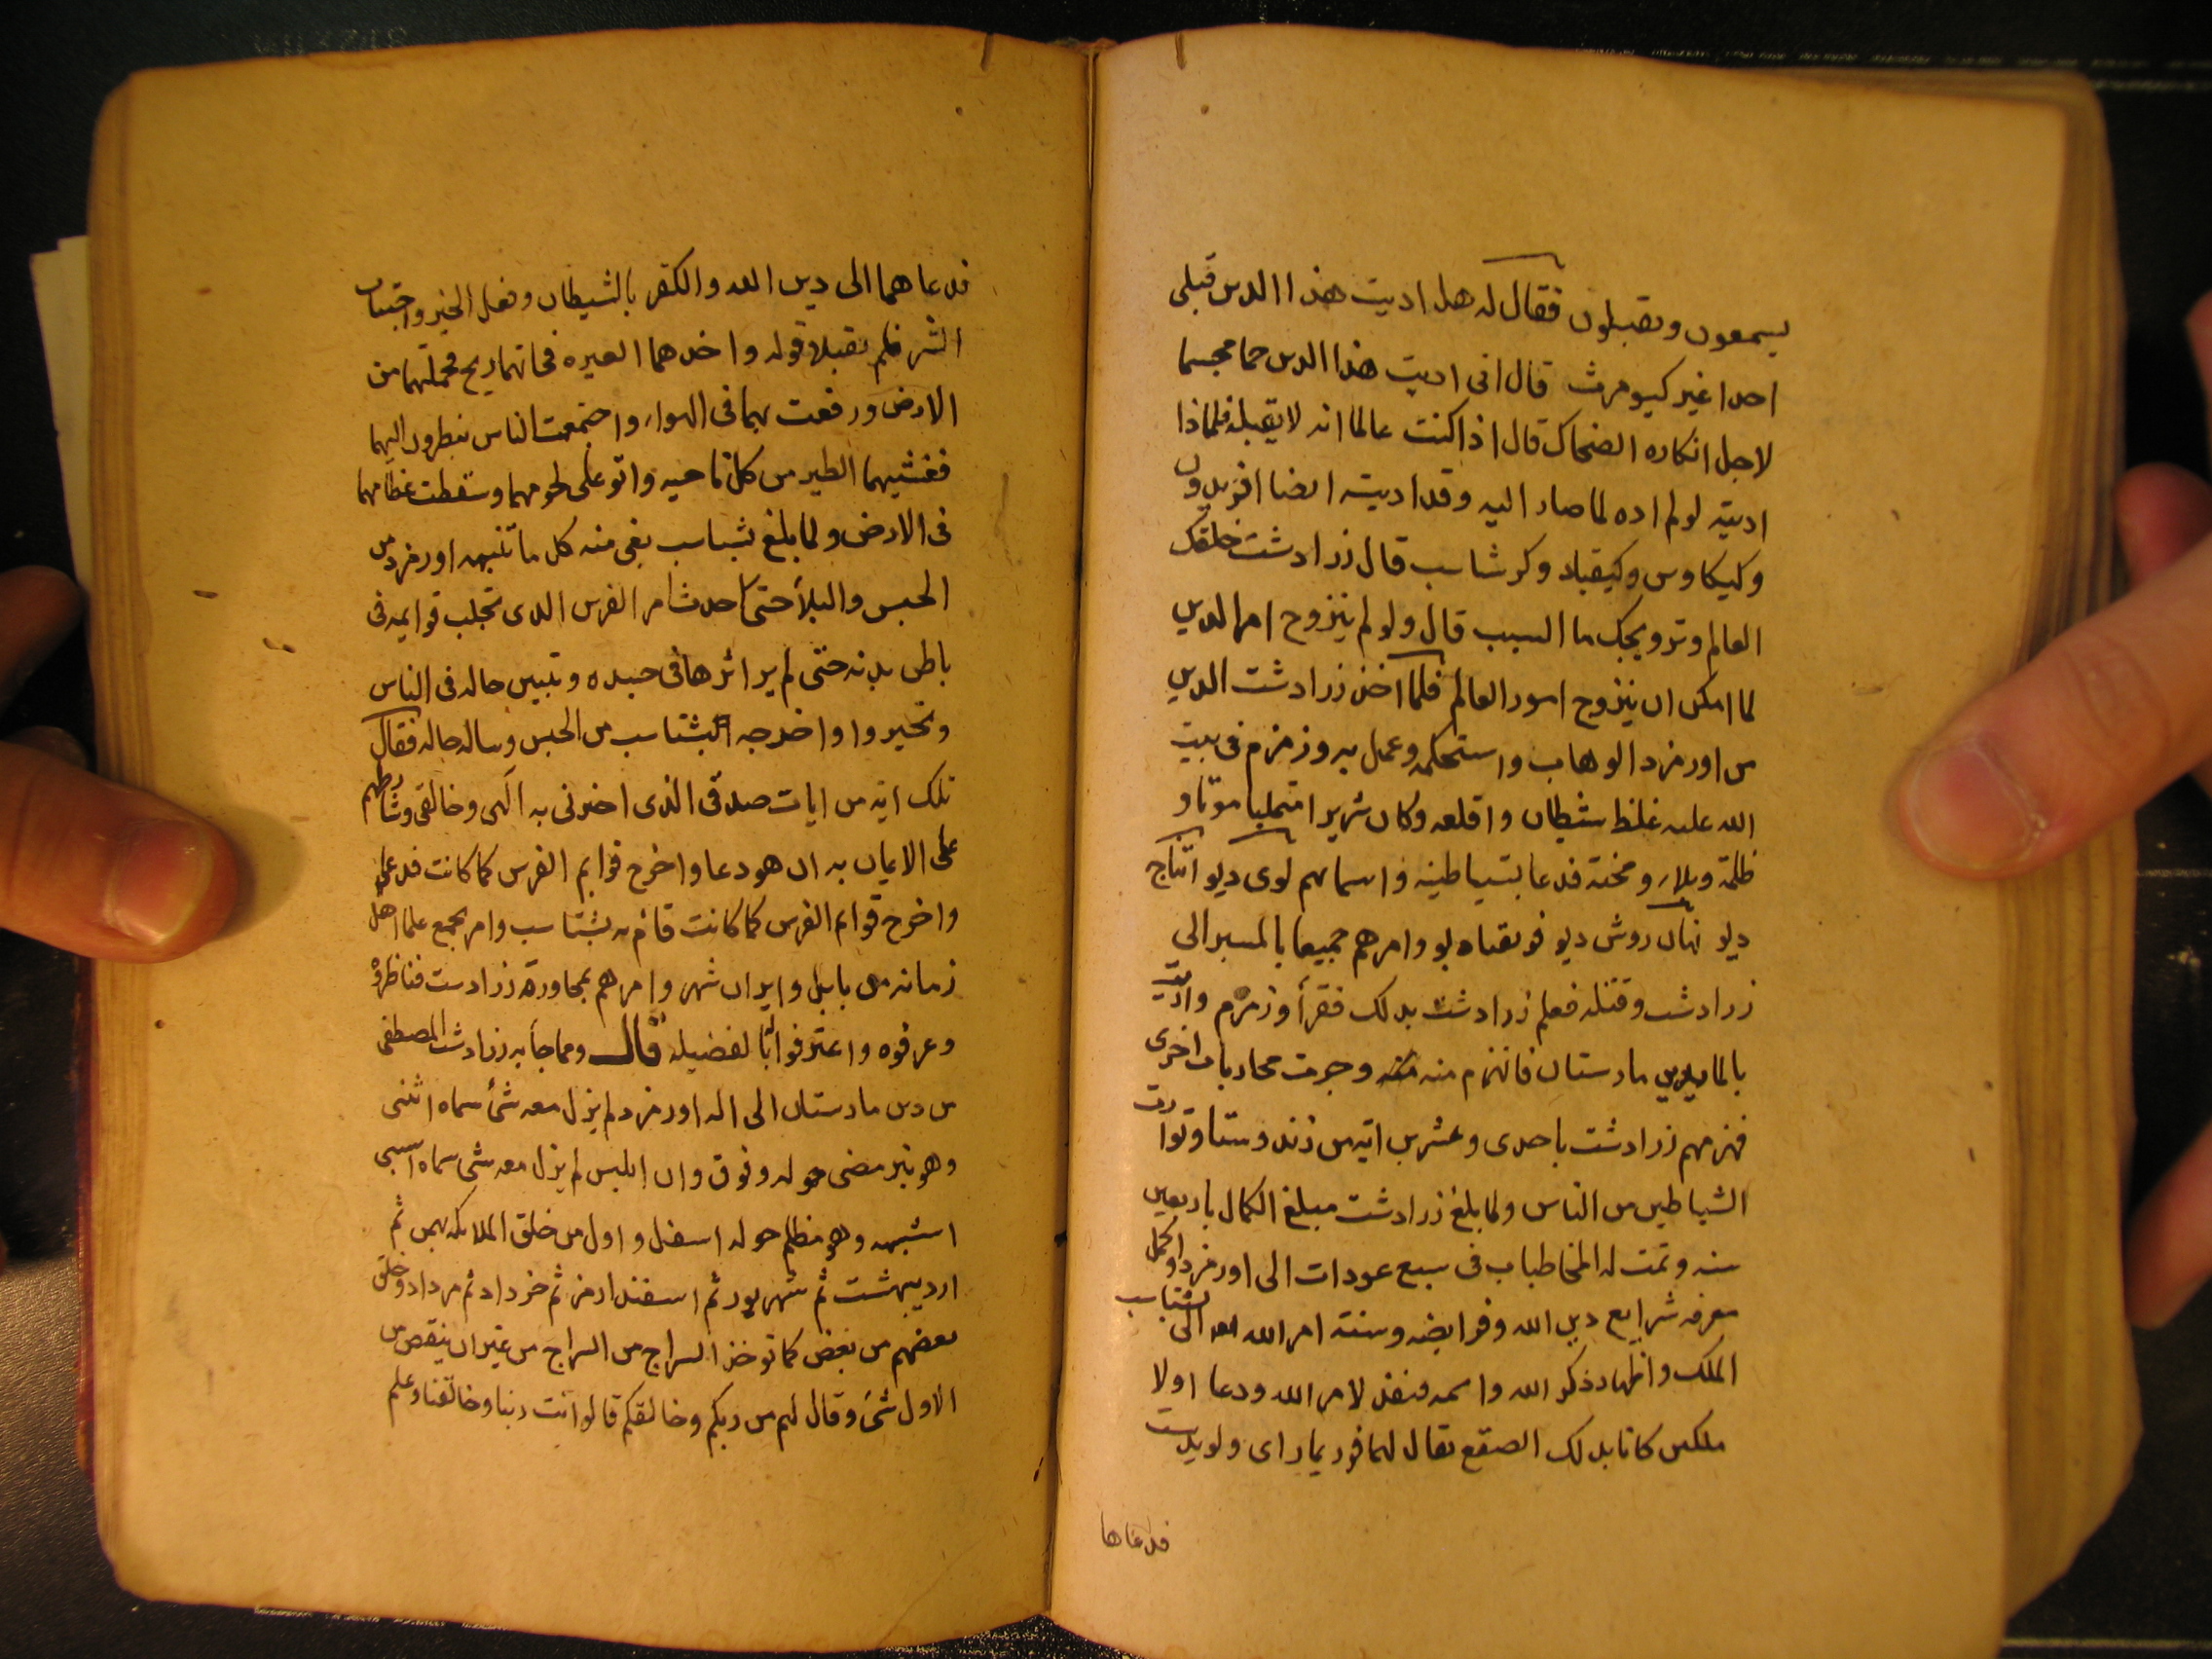 يسمعون ويقبلون فقال له هل اديت هذا الدين قبلى
احدا غير كيومرث قال انى اديت هذا الدين جما مجسما
لاجل انكاره الضحاك قال اذا كنت عالما انه لا يقبله فلماذا
اديته لو لم اده لما صار اليه وقد اديته ايضا افريدون
وكيكاوس وكيقباد وكرشاسب قال زرادشت خلقك
العالم وترويجك ما السبب قال ولو لم يتزوج امر الدين
لما امكن ان يتزوج امور العالم فلما اخذ زرادشت الدين
من اورمزد الوهاب واستحكمه وعمل به وزمزم فى بيت
الله عليه غلظ شيطان واقلعه وكان شريرا ممتليا موتا و
ظلمة وبلاء ومحنة فدعا بشياطينه واسماهم لوى ديو اتتاج
ديو نهان روش ديو فريفتاه يو وامرهم جميعا بالمسير الى
زرادشت وقتله فعلم زرادشت بذلك فقرأ وزمزم
مارستان فانهزم منه وجرت محاربات اخرى
فهزمهم زرادشت باحدى وعشرين اية من زند وستا وتوارت
الشياطين من الناس ولما بلغ زرادشت مبلغ الكمال باربعين
سنه وتمت له المخاطبات فى سبع عودات الى اورمزد واكمل
معرفه شرايع دين الله وفرايضه وسنته امر الله الى بشتاسب
الملك واظهار ذكر الله واسمه فنفذ لامر الله ودعا اولا
ملكين كانا بذلك الصقع يقال لهما فوريماراى ولويدست
فدعاها
فدعاهما الى دين الله والكفر بالشيطان وفعل الخير واجتناب
الشر فلم يقبلا قوله واخذهما العيره فجاتهما ريح فحملتهما من
الارض ورفعت بهما فى الهواء واجتمعت الناس ينظرون اليهما
فغشيهما الطير من كل ناحيه واتو على لحومهما وسقطت عظامهما
فى الارض ولما بلغ بشتاسب بقى منه كل ما تنبيهه اورمزد من
الحبس والبلأ حتى حدث امر الفرس الدى تجلب قوايمه فى
باطن بدنه حتى لم ير اثرها فى جسده وتبين حاله فى الناس
وتحيروا واخرجه بشتاسب من الحبس وساله حاله فقال
تلك اية من ايات صدقى الذى اخبرنى به الهى وخالقى وشارطهم
على الايمان به ان هو دعا واخرج قوايم الفرس كما كانت فدعا
واخرج قوايم الفرس كما كانت فامر به بشتاسب وامر بجمع علما اهل
زمانه من بابل وايران شهر وامرهم بمحاورة زرادست فناظروه
وعرفوه واعترفوا له بالفضيله قال ومما جأ به زرادشت المصطفى
من دين مارستان الى اله اورمزد لم يزل معه شئ سماه اثنى
وهو نير مضى حوله وفوق وان ابليس لم يزل معه شى سماه اسبى
استبهه وهو مظلم حوله اسفل واول من خلق الملايكه بهمن ثم
ارديبهشت ثم شهريور ثم اسفندارمز ثم خرداد ثم مرداد وخلق
بعضهم من بعض كما توخذ السراج من السراج من غير ان ينقص من
الاول شئ وقال لهم من ربكم وخالقكم قالو انت ربنا وخالقنا وعلم